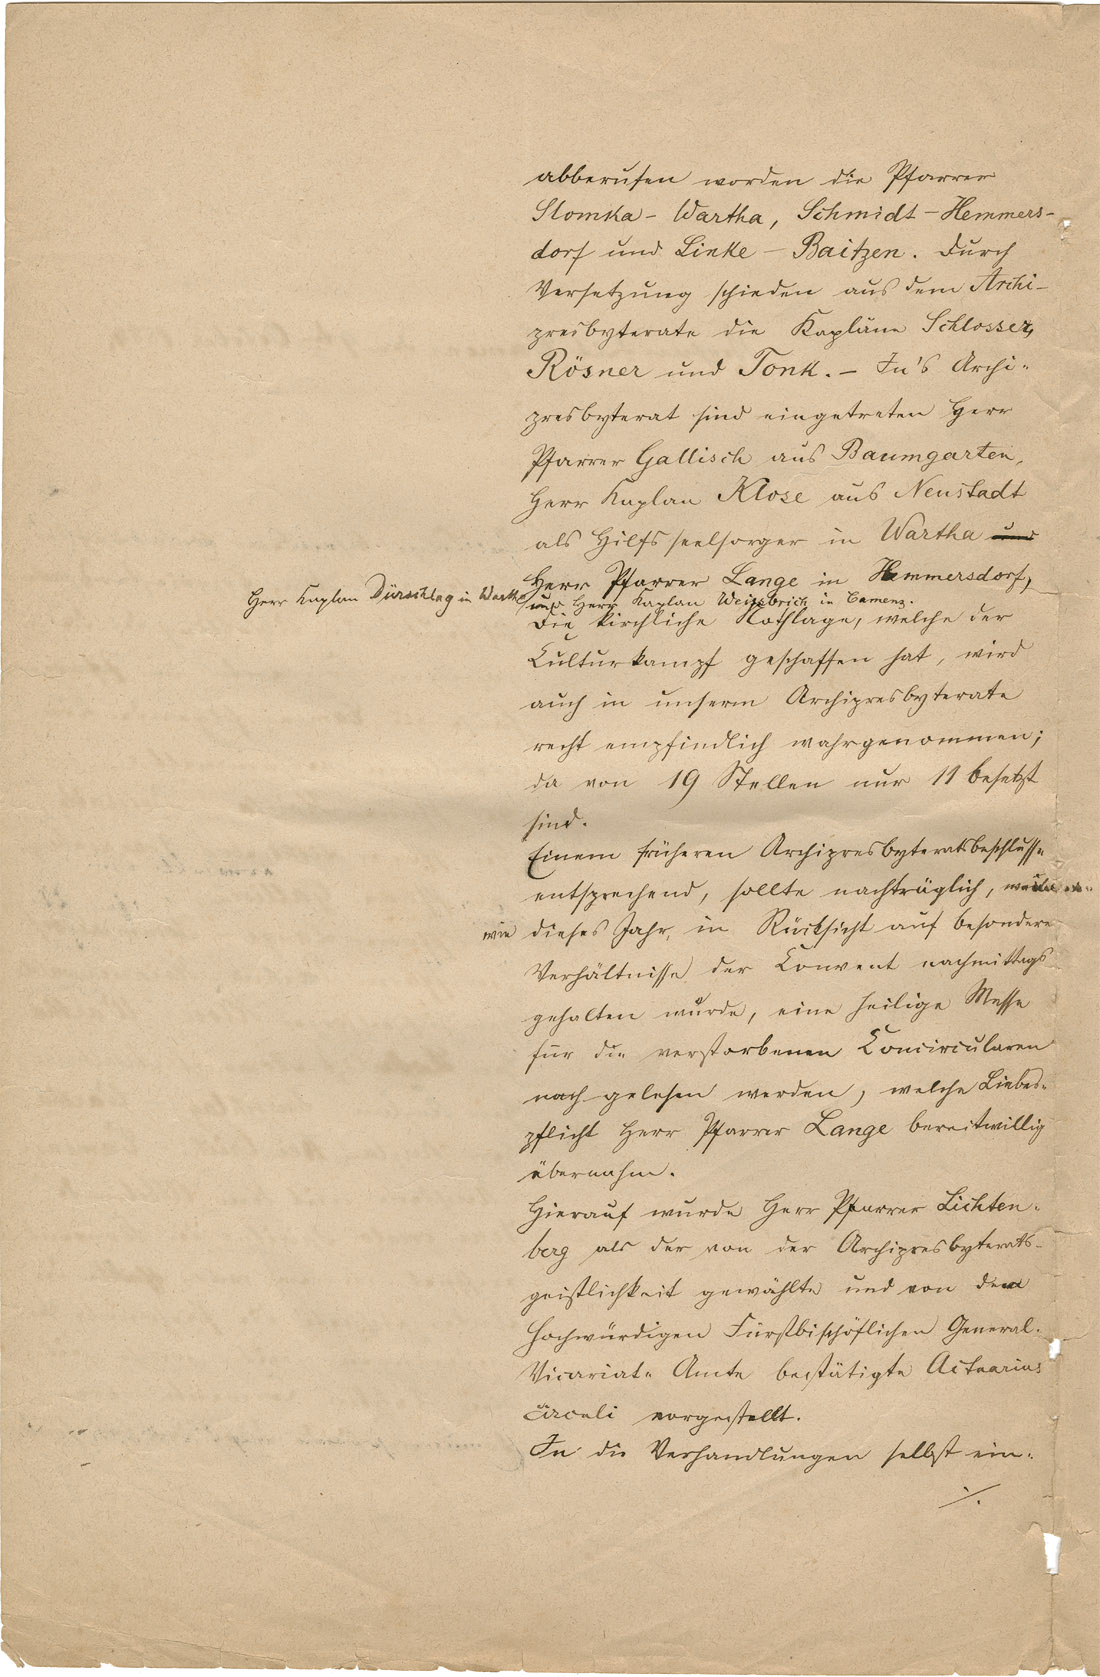 abberufen worden die Pfarrer
Slomka - Wartha, Schmidt - Hemmers-
dorf und Linke - Baitzen. Durch
Versetzung schieden aus dem Archi-
presbyterate die Kapläne Schlosser,
Rösner und Tonk. - In's Archi-
presbyterat sind eingetreten Herr
Pfarrer Gallisch aus Baumgarten,
Herr Kaplan Klose aus Neustadt
als Hilfsseelsorger in Wartha und
Herr Pfarrer Lange in Hemmersdorf,
Herr Kaplan Dürschlag in Wartha
und Herr Kaplan Weissbrich in Camenz.
Die kirchliche Nothlage, welche der
Culturkampf geschaffen hat, wird
auch in unserm Archipresbyterate
recht empfindlich wahrgenommen;
da von 19 Stellen nur 11 besetzt
sind.
Einem früheren Archipresbyteratsbeschlusse
entsprechend, sollte nachträglich,
wie dieses Jahr, in Rücksicht auf besondere
Verhältnisse der Convent nachmittags
gehalten wurde, eine heilige Messe
für die verstorbenen Concircularen
nach gelesen werden, welche Liebes-
pflicht Herr Pfarrer Lange bereitwillig
übernahm.
Hierauf wurde Herr Pfarrer Lichten-
berg als der von der Archipresbyterats-
geistlichkeit gewählte und von dem
Hochwürdigen Fürstbischöflichen General-
Vicariat- Amte bestätigte Actuarius
circuli vorgestellt.
In die Verhandlungen selbst ein-
./.